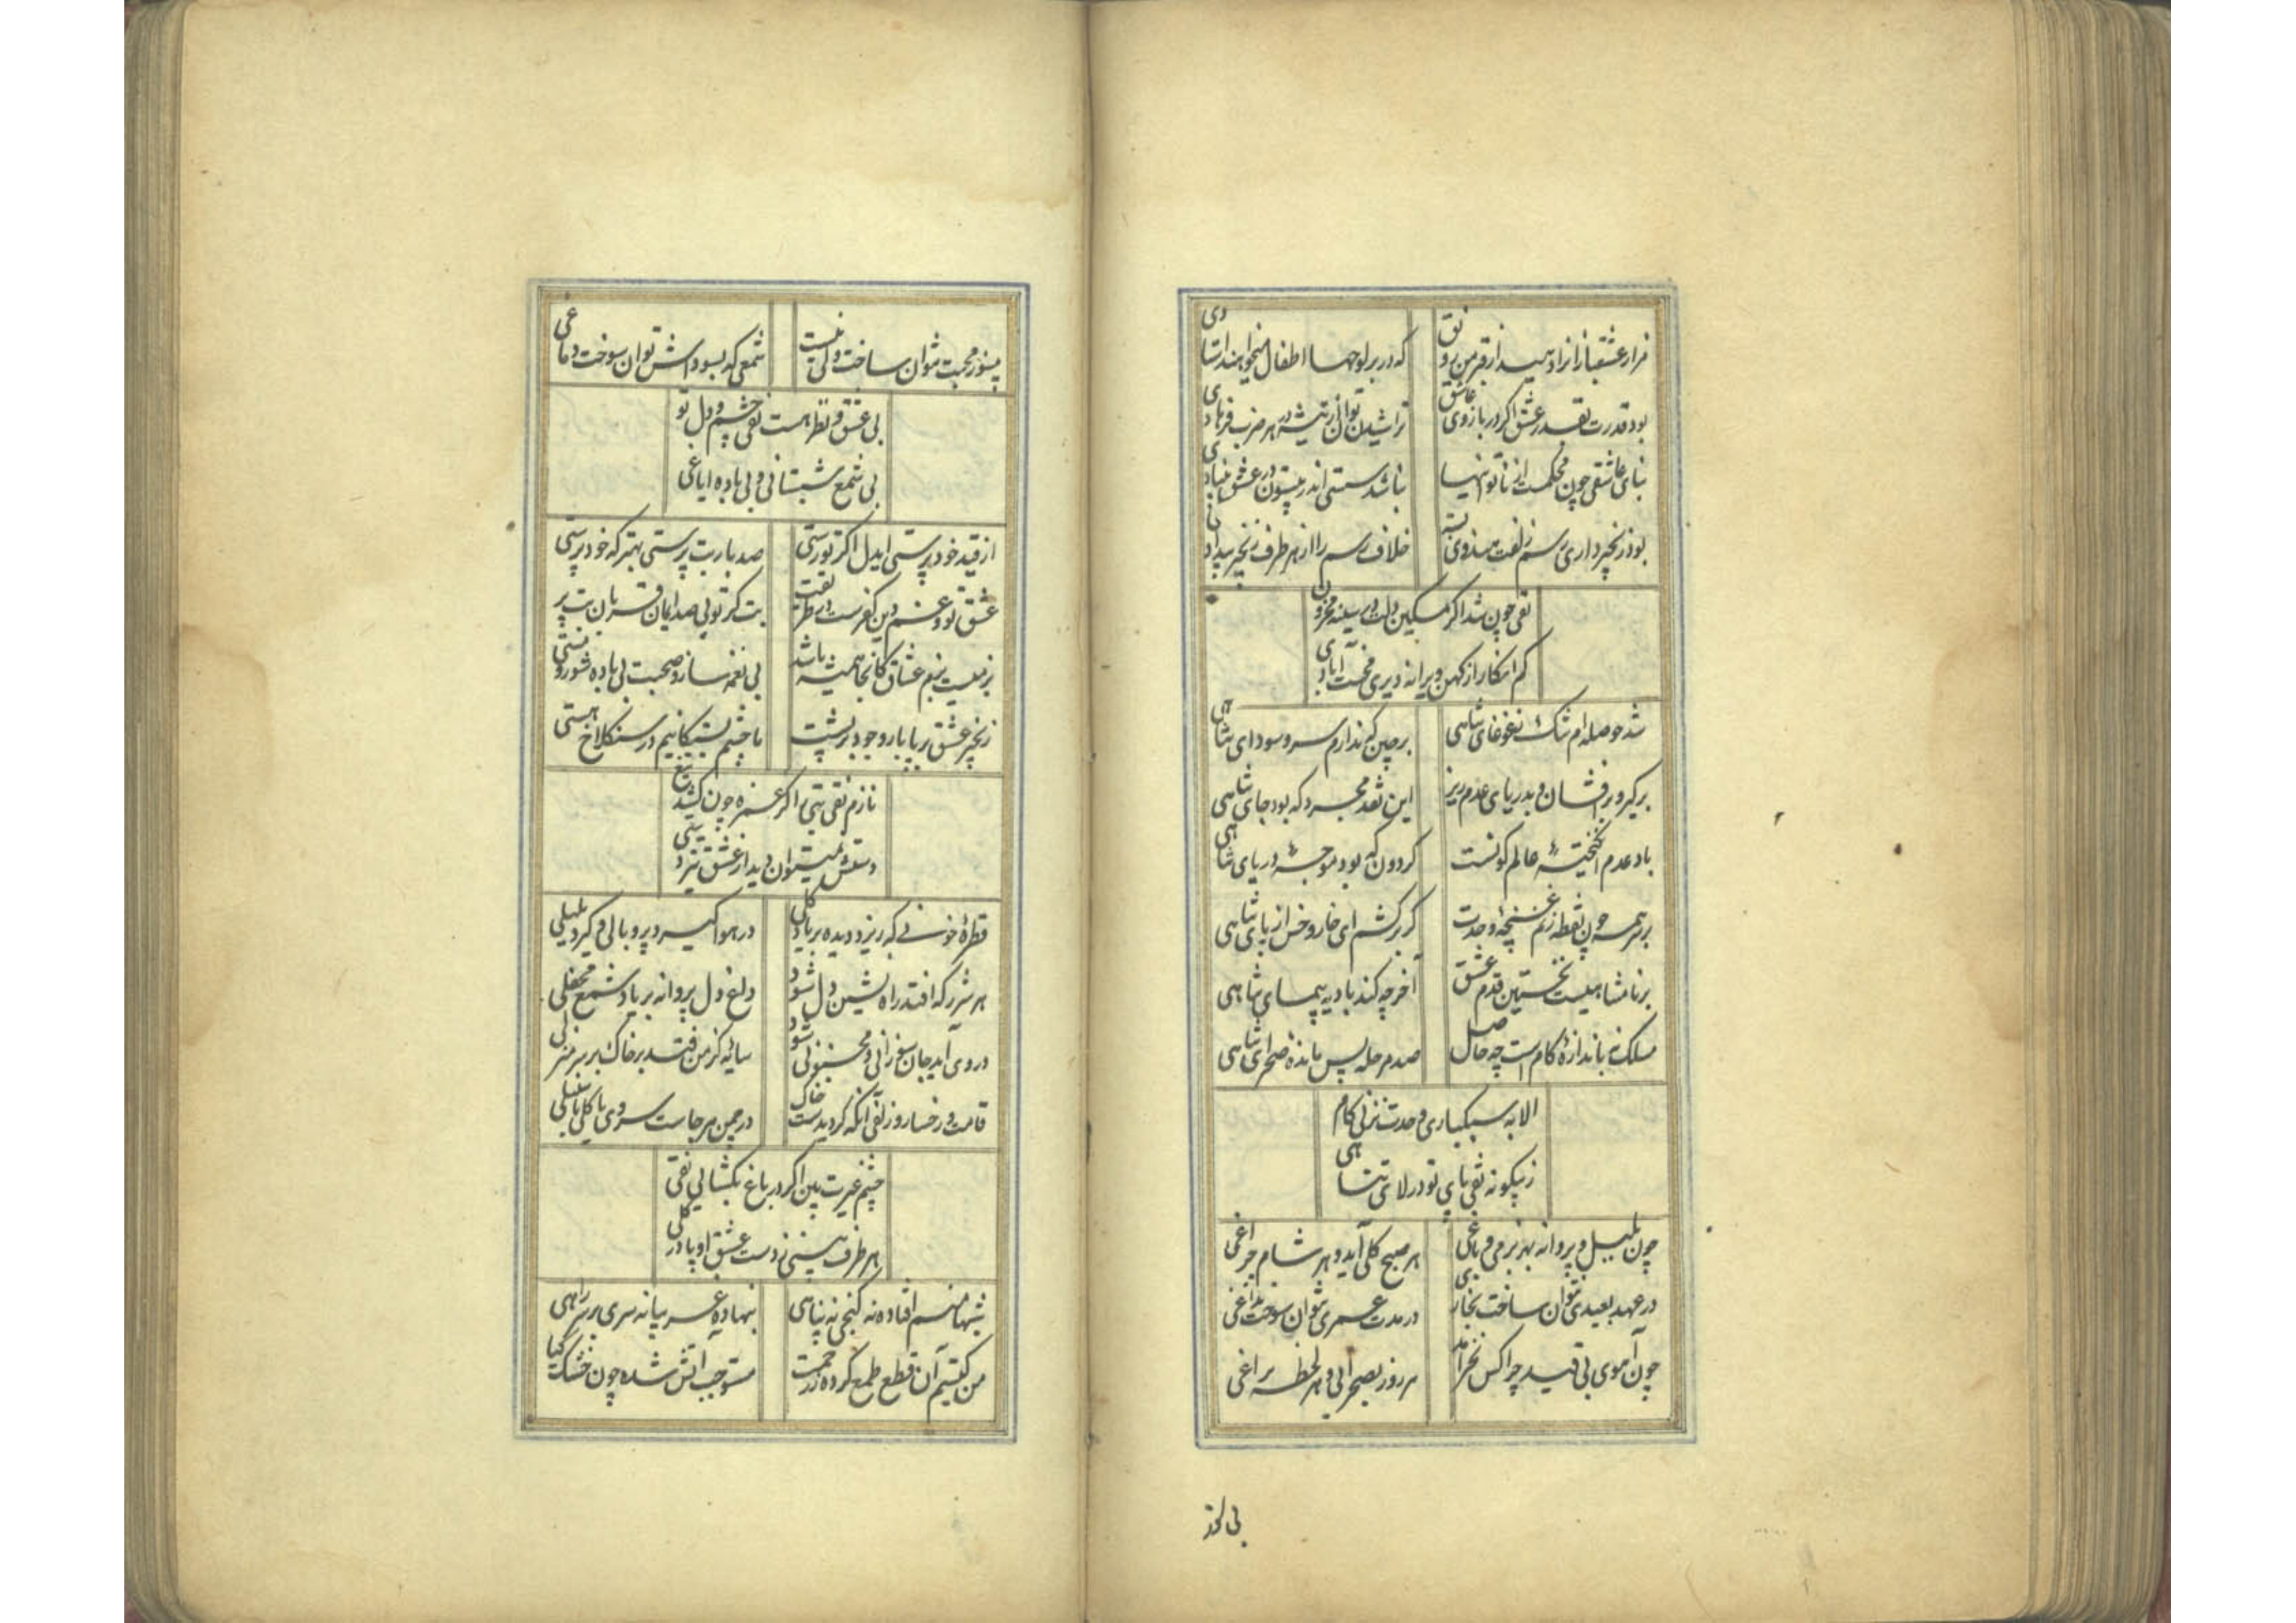 که در بر لوحها اطفال میخوانند استادی
بود قدرت بقدر عشق اگر در بازوی عاشق
تراشیدن توان از تیشه هر ضرب فرهادی
بنای عاشقی چون محکمست از ناتوانیها
نباشد سستی اندر بیستون عشق بنیادی
خلاف رسم را از هر طرف زنجیر بیدادی
نقی چون شد اگر مسکین دلت در سینه محزون
کم انگار از کهن ویرانه دیری محنت آبادی
شد حوصله‌ام تنگ ز غوغای تباهی
برچین که ندارم سر و سودای تباهی
برگیر و برافشان و به دریای عدم ریز
این نقد مجرد که بود جای تباهی
گردون که بود موجه دریای تباهی
گر برکشم ای خار و خس از پای تباهی
نخستین قدم عشق
آخر چه کند بادیه پیمای تباهی
مسلک نه باندازه کام است چه حاصل
صد مرحله پس مانده صحرای تباهی
الا به سبکباری وحدت نزنی گام
زینگونه نقی پای تو در لای تباهی
چون بلبل و پروانه بهر بزمی و باغی
هر صبح گلی آید و هر شام چراغی
در مدت عمری نتوان سوخت بداغی
چون آهوی بی قید چرا کس نخرامد
هر روز بصحرایی و هر لحظه براغی
بی نور
بی نور محبت نتوان ساخت ولی نیست
شمعی که بسودایش توان سوخت دماغی
بی عشق و نظر هست نقی چشم و دل تو
بی شمع شبستانی و بی باده ایاغی
از قید خودپرستی ایدل اگر تو رستی
صد بار بت پرستی بهتر که خودپرستی
عشق تو و غم دین کفرست در طریقت
بت گر تویی صد ایمان قربان بت پرستی
بزمیست بزم عشاق کانجا همیشه باشد
بی نغمه ساز و صحبت بی باده شور و مستی
زنجیر عشق بر پا بار وجود بر پشت
ما چشم بستگانیم در سنگلاخ هستی
نازم نقی بتی را کز غمزه چون کشد تیغ
قطره خونی که ریزد دیده بر یاد گلی
در هوا گیرد پر و بالی و گردد بلبلی
هر شرر که افتد ز راه دلنشین دل شود
داغ دل پروانه بر یاد شمع محفلی
سایه کز من فتد بر خاک بر سر منزلی
قامت و رخسار و زلفی آنکه گردیدست خاک
در چمن هر جاست سروی یا گلی یا سنبلی
چشم غیرت بین اگر در باغ بگشایی نقی
هر طرف بینی ز دست عشق او پا در گلی
شبها منم افتاده نه کنجی نه پناهی
بنهاده غریبانه سری بر سر راهی
من کیستم آن قطع طمع کرده ز رحمت
مستوجب آتش شده چون خشک گیاهی